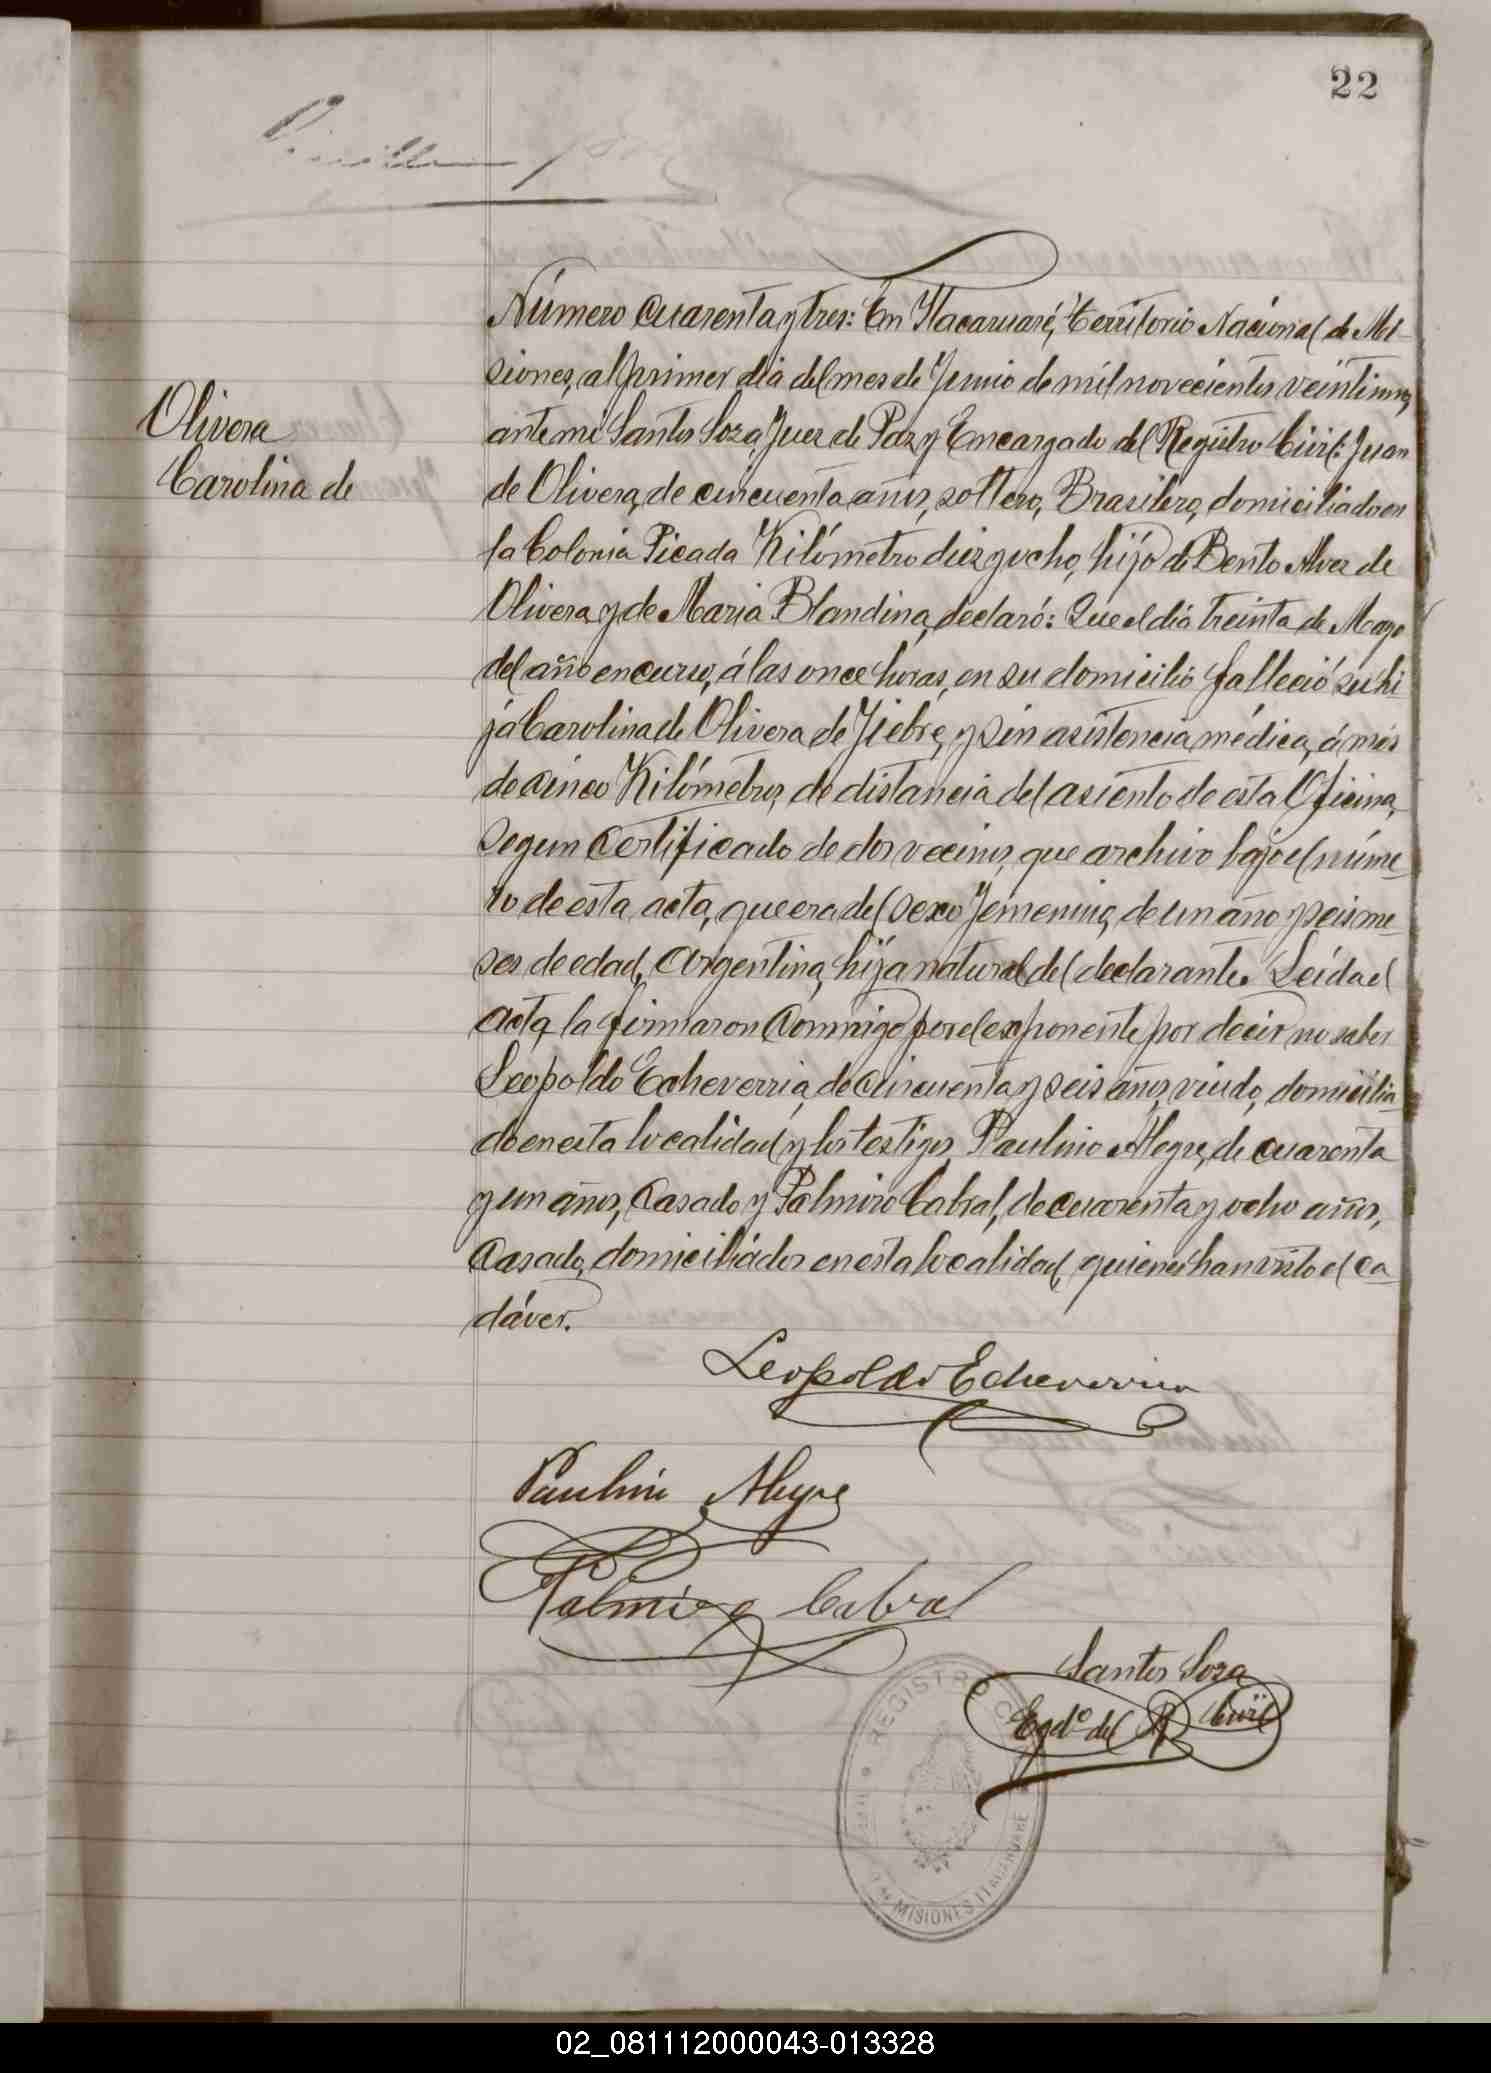 22
Olivera
Carolina de
Número cuarenta y tres: En Itacaruaré, Territorio Nacional de Mi-
siones, al primer dia del mes de Junio de mil novecientos veintiuno,
ante mi Santos Soza, Juez de Paz y Encargado del Registro Civil: Juan
de Olivera, de cincuenta años, soltero, Brasilero, domiciliado en
la Colonia Picada Kilómetro diez y ocho, hijo de Bento Alvez de
Olivera y de Maria Blandina, declaró: Que el dia treinta de Mayo
del año en curso, á las once horas, en su domicilio falleció su hi-
ja Carolina de Olivera de fiebre, y sin asistencia médica, á más
de cinco Kilómetros de distancia del asiento de esta Oficina,
segun certificado de dos vecinos, que archivo bajo el núme-
ro de esta acta, que era del sexo femenino, de un año y seis me-
ses de edad, Argentina, hija natural del declarante. Leída el
acta, la firmaron conmigo por el exponente por decir no saber
Leopoldo Echeverria, de cincuenta y seis años, viudo, domicilia-
do en esta localidad y los testigos, Paulino Alegre, de cuarenta
y un años, casado y Palmiro Cabral, de cuarenta y ocho años,
casado, domiciliados en esta localidad, quienes han visto el ca-
dáver.
Leopoldo Echeverria
Paulino Alegre
Palmiro Cabral
Santos Soza
Egdo. del R. Civil
REGISTRO C
MISIONES ITACARUARE
02_081112000043-013328